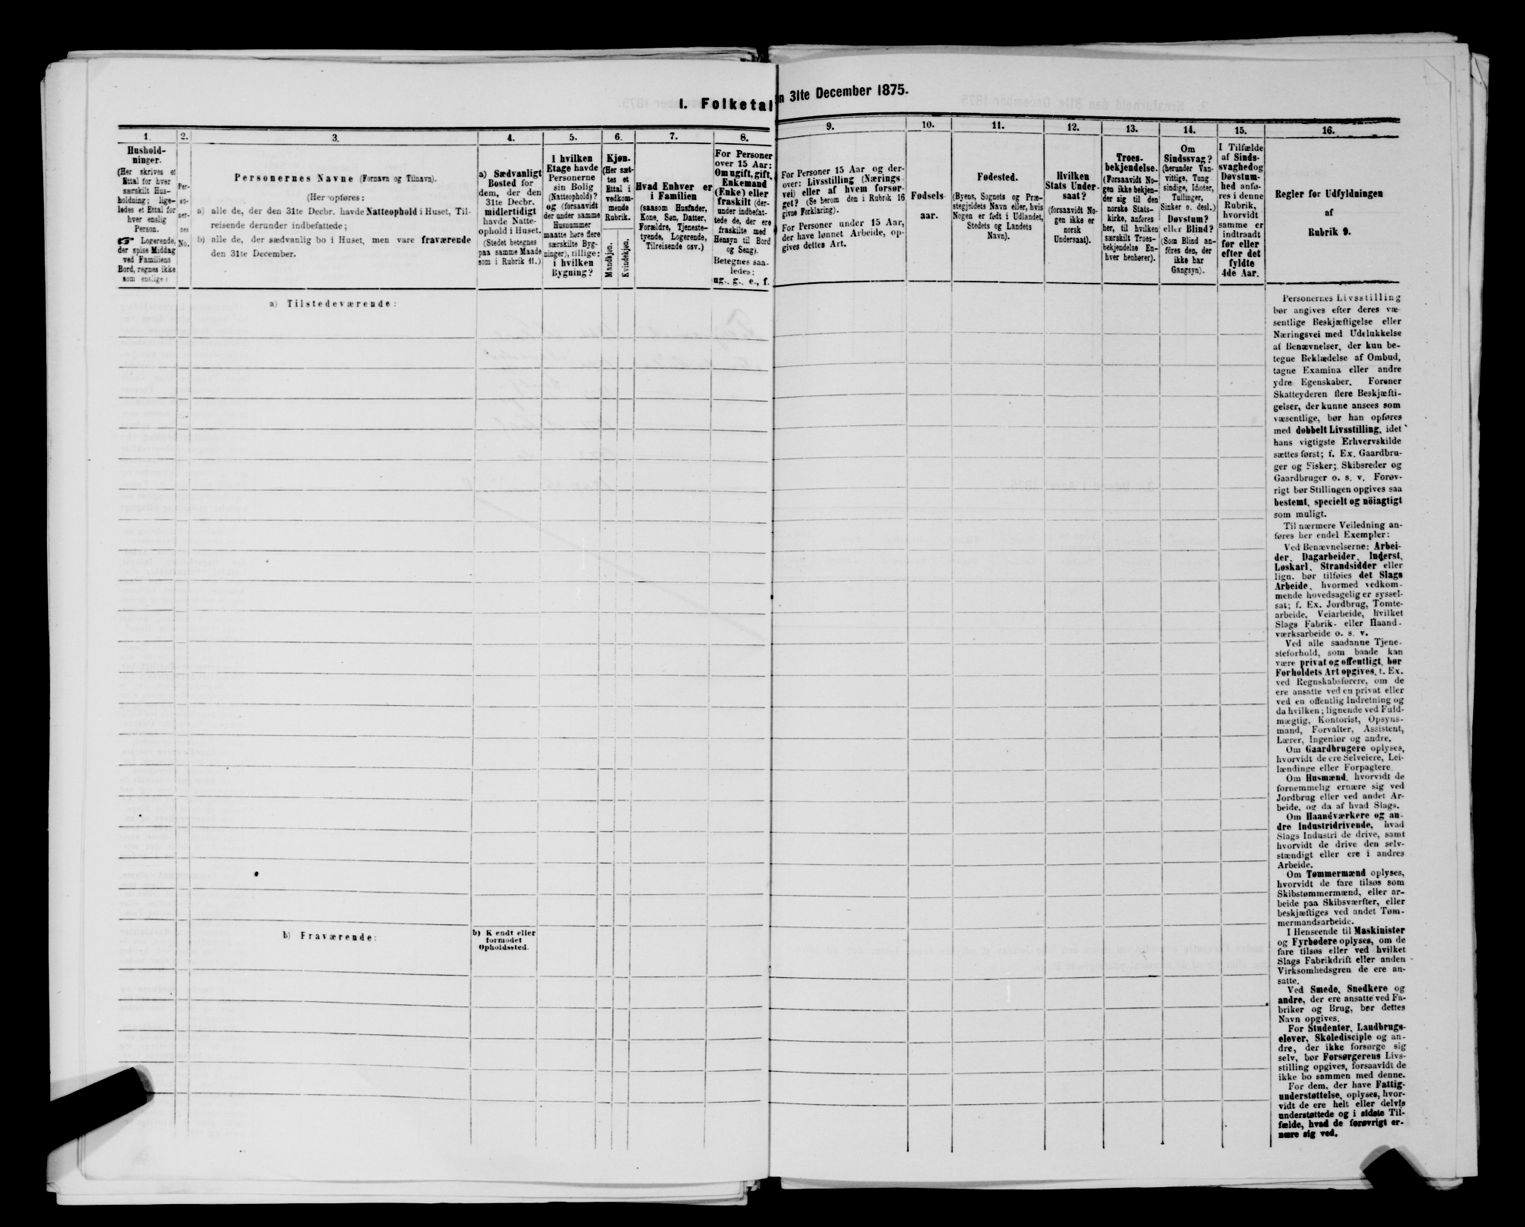 1. Folketal
n 31te December 1875.
1.
2.
3.
4.
5.
6.
7.
8.
9.
10.
11.
12.
13.
14.
15.
16.
Hushold-
ninger.
(Her skrives et
Ettal for hver
særskilt Hus-
holdning; lige-
ledes et Ettal for
hver enslig
Person.
☛ Logerende,
der spise Middag
ved Familiens
Bord, regnes ikke
som enslige)
Per-
so-
ner-
nes
No.
Personernes Navne (Fornavn og Tilnavn).
(Her opføres:
a) alle de, der den 31te Decbr. havde Natteophold i Huset, Til-
reisende derunder indbefattede;
b) alle de, der sædvanlig bo i Huset, men vare fraværende
den 31te December.
a) Sædvanligt
Bosted for
dem, der den
31te Decbr.
midlertidigt
havde Natte-
ophold i Huset.
(Stedet betegnes
paa samme Maade
som i Rubrik 11.)
I hvilken
Etage havde
Personerne
sin Bolig
(Natteophold)?
og (forsaavidt
der under samme
Husnummer
maatte høre flere
særskilte Byg-
ninger), tillige:
i hvilken
Bygning?
Kjøn.
(Her sæt-
tes et
Ettal i
vedkom-
mende
Rubrik.
Mandkjøn.
Kvindekjøn.
Hvad Enhver er
i Familien
(saasom Husfader,
Kone, Søn, Datter,
Forældre, Tjeneste-
tyende, Logerende,
Tilreisende osv.)
For Personer
over 15 Aar:
Om ugift, gift,
Enkemand
(Enke) eller
fraskilt (der-
under indbefat-
tede de, der ere
fraskilte med
Hensyn til Bord
og Seng).
Betegnes saa-
ledes:
ug., g., e., f.
For Personer 15 Aar og der-
over: Livsstilling (Nærings-
vei) eller af hvem forsør-
get? (Se herom den i Rubrik 16
givne Forklaring).
For Personer under 15 Aar,
der have lønnet Arbeide, op-
gives dettes Art.
Fødsels-
aar.
Fødested.
(Byens, Sognets og Præ-
stegjeldets Navn eller, hvis
Nogen er født i Udlandet,
Stedets og Landets
Navn).
Hvilken
Stats Under-
saat?
(forsaavidt No-
gen ikke er
norsk
Undersaat).
Troes-
bekjendelse.
(Forsaavidt No-
gen ikke bekjen-
der sig til den
norske Stats-
kirke, anføres
her, til hvilken
særskilt Troes-
bekjendelse En-
hver henhører).
Om
Sindssvag?
(herunder Van-
vittige, Tung
sindige, Idioter,
Tullinger,
Sinker o. desl.)
Døvstum?
eller Blind?
(Som Blind an-
føres den, der
ikke har
Gangsyn).
I Tilfælde
af Sinds-
svaghed og
Døvstum-
hed anfø-
res i denne
Rubrik,
hvorvidt
samme er
indtraadt
før eller
efter det
fyldte
4de Aar.
Regler for Udfyldningen
af
Rubrik 9.
a) Tilstedeværende:
b) Fraværende:
b) Kjendt eller
formodet
Opholdssted.
Personernes Livsstilling
bør angives efter deres væ-
sentlige Beskjæftigelse eller
Næringsvei med Udelukkelse
af Benævnelser, der kun be-
tegne Beklædelse af Ombud,
tagne Examina eller andre
ydre Egenskaber. Forener
Skatteyderen flere Beskjæfti-
gelser, der kunne ansees som
væsentlige, bør han opføres
med dobbelt Livsstilling, idet
hans vigtigste Erhvervskilde
sættes først; f. Ex. Gaardbru-
ger og Fisker; Skibsreder og
Gaardbruger o. s. v. Forøv-
rigt bør Stillingen opgives saa
bestemt, specielt og nøiagtigt
som muligt.
Til nærmere Veiledning an-
føres her endel Exempler:
Ved Benævnelserne: Arbei-
der, Dagarbeider, Inderst,
Løskarl, Strandsidder eller
lign. bør tilføies det Slags
Arbeide, hvormed vedkom-
mende hovedsagelig er syssel-
sat; f. Ex. Jordbrug, Tomte-
arbeide, Veiarbeide, hvilket
Slags Fabrik- eller Haand-
værksarbeide o. s. v.
Ved alle saadanne Tjene-
steforhold, som baade kan
være privat og offentligt, bør
Forholdets Art opgives, f. Ex.
ved Regnskabsførere, om de
ere ansatte ved en privat eller
ved en offentlig Indretning og
da hvilken; lignende ved Fuld-
mægtig, Kontorist, Opsyns-
mand, Forvalter, Assistent,
Lærer, Ingeniør og andre.
Om Gaardbrugere oplyses,
hvorvidt de ere Selveiere, Lei-
lændinge eller Forpagtere.
Om Husmænd, hvorvidt de
fornemmelig ernære sig ved
Jordbrug eller ved andet Ar-
beide, og da af hvad Slags.
Om Haandværkere og an-
dre Industridrivende, hvad
Slags Industri de drive, samt
hvorvidt de drive den selv-
stændigt eller ere i andres
Arbeide.
Om Tømmermænd oplyses,
hvorvidt de fare tilsøs som
Skibstømmermænd, eller ar-
beide paa Skibsværfter, eller
beskjæftiges ved andet Tøm-
mermandsarbeide.
I Henseende til Maskinister
og Fyrbødere oplyses, om de
fare tilsøs eller ved hvilket
Slags Fabrikdrift eller anden
Virksomhedsgren de ere an-
satte.
Ved Smede, Snedkere og
andre, der ere ansatte ved Fa-
briker og Brug, bør dettes
Navn opgives.
For Studenter, Landbrugs-
elever, Skoledisciple og an-
dre, der ikke forsørge sig
selv, bør Forsørgerens Livs-
stilling opgives, forsaavidt de
ikke bo sammen med denne.
For dem, der have Fattig-
understøttelse, oplyses, hvor-
vidt de ere helt eller delvis
understøttede og i sidste Til-
fælde, hvad de forøvrigt er-
nære sig ved.